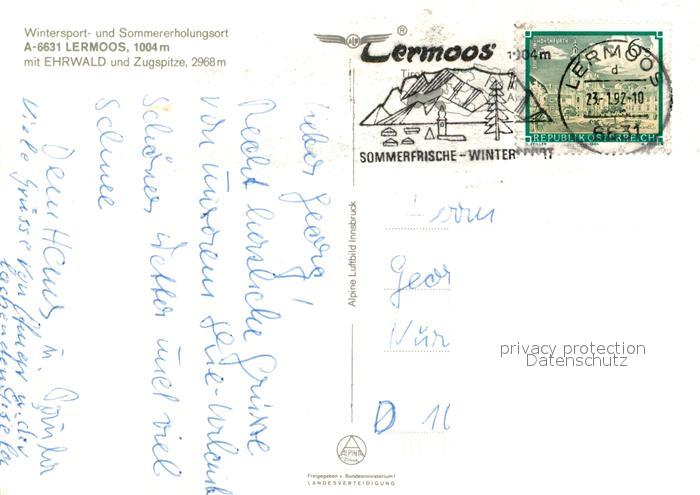 Wintersport- und Sommererholungsort
A-6631 LERMOOS, 1004 m
mit EHRWALD und Zugspitze, 2968 m
ALPINA
®
Lermoos
1004m
SOMMERFRISCHE - WINTER
REPUBLIK ÖSTERREICH
LERMOOS
d
23.-1.92-10
Lieber Georg!
Recht herzliche Grüsse
von unserem Skie-Urlaub
Schönes Wetter und viel
Schnee
Dein Heinz
Viele Grüsse von
Alpine Luftbild Innsbruck
Herrn
Geor
Nür
D
privacy protection
Datenschutz
ALPINA
Freigegeben v. Bundesministerium f.
LANDESVERTEIDIGUNG